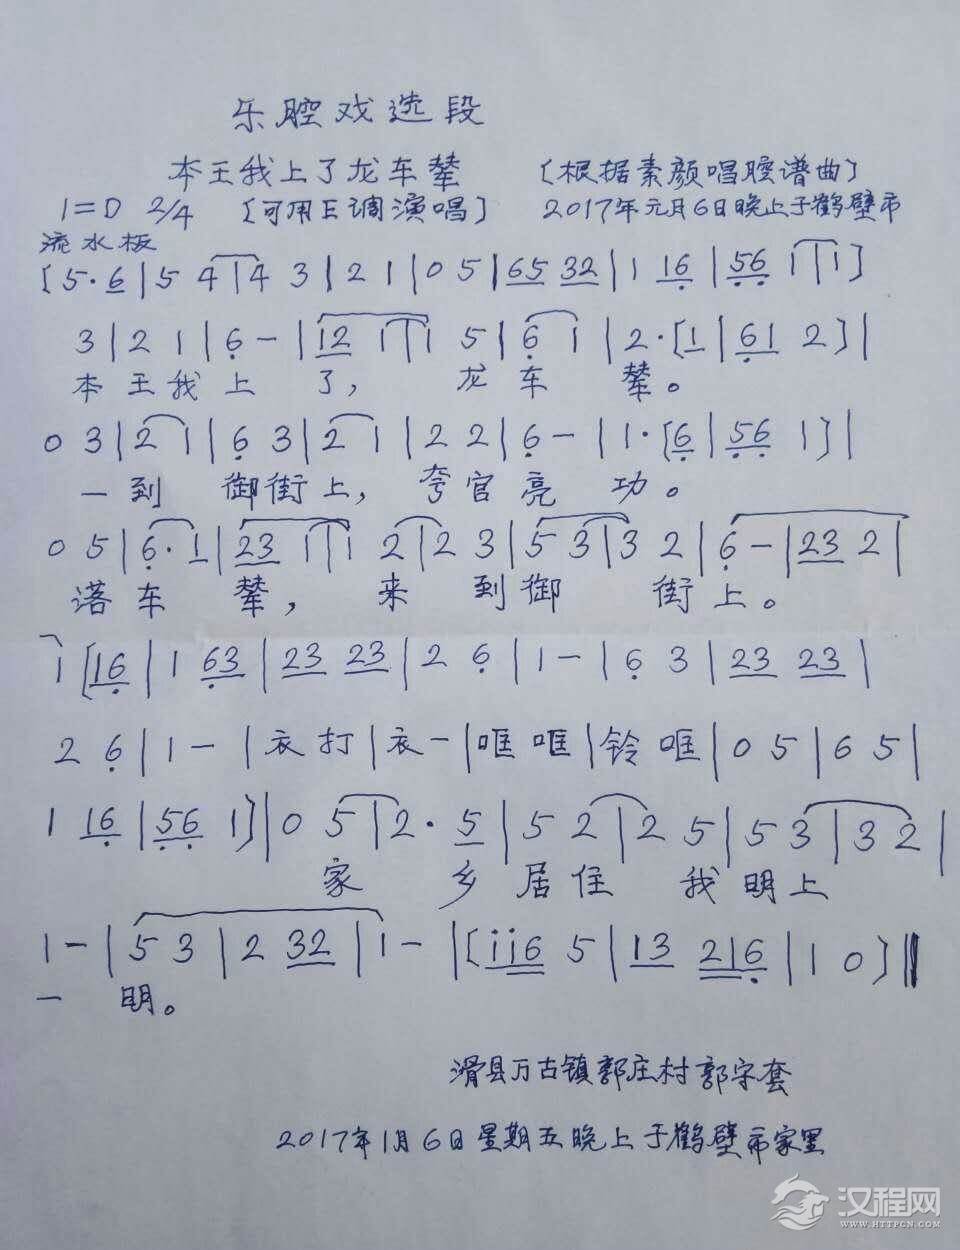 乐腔戏选段
本王我上了龙车辇 〔根据素颜唱腔谱曲〕
1=D 2/4 〔可用E调演唱〕 2017年元月6日晚上于鹤壁市
流水板
〔5·6|5 4|4 3|2 1|0 5|65 32|1 16|56 1|1〕
3|2 1|6-|12 1|1 5|6 1|2·〔1|61 2〕|
本王我上了，龙车辇。
0 3|2 1|6 3|2 1|2 2|6-|1·〔6|56 1〕|
一到御街上，夸官亮功。
0 5|6·1|23 1|1 2|2 3|5 3|3 2|6-|23 2|
落车辇，来到御街上。
1〔16|1 63|23 23|2 6|1-|6 3|23 23|
2 6|1-|衣打|衣一|哐哐|铃哐|0 5|6 5|
1 16|56 1〕|0 5|2·5|5 2|2 5|5 3|3 2|
家乡居住我明上
1-|5 3|2 32|1-|〔116 5|13 216|1 0〕‖
一明。
滑县万古镇郭庄村郭守套
2017年1月6日星期五晚上于鹤壁市家里
汉程网
WWW.HTTPCN.COM